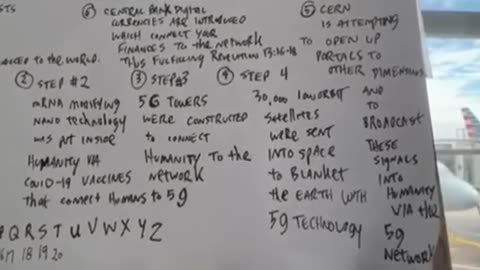 TO THE WORLD.
⑥ CENTRAL BANK DIGITAL
CURRENCIES ARE INTRODUCED
WHICH CONNECT YOUR
FINANCES TO THE NETWORK
THUS FULFILLING REVELATION 13:16-18
⑤ CERN
IS ATTEMPTING
TO OPEN UP
PORTALS TO
OTHER DIMENSIONS
AND
TO
BROADCAST
THESE
SIGNALS
INTO
HUMANITY
VIA THE
5G
NETWORK
② STEP #2
mRNA MODIFYING
NANO TECHNOLOGY
WAS PUT INSIDE
HUMANITY VIA
COVID-19 VACCINES
that CONNECT HUMANS to 5g
③ STEP #3
5G TOWERS
WERE CONSTRUCTED
to CONNECT
HUMANITY TO the
NETWORK
④ STEP 4
30,000 LOW ORBIT
Satellites
WERE SENT
INTO SPACE
to BLANKET
the EARTH WITH
5g TECHNOLOGY
P Q R S T U V W X Y Z
17 18 19 20